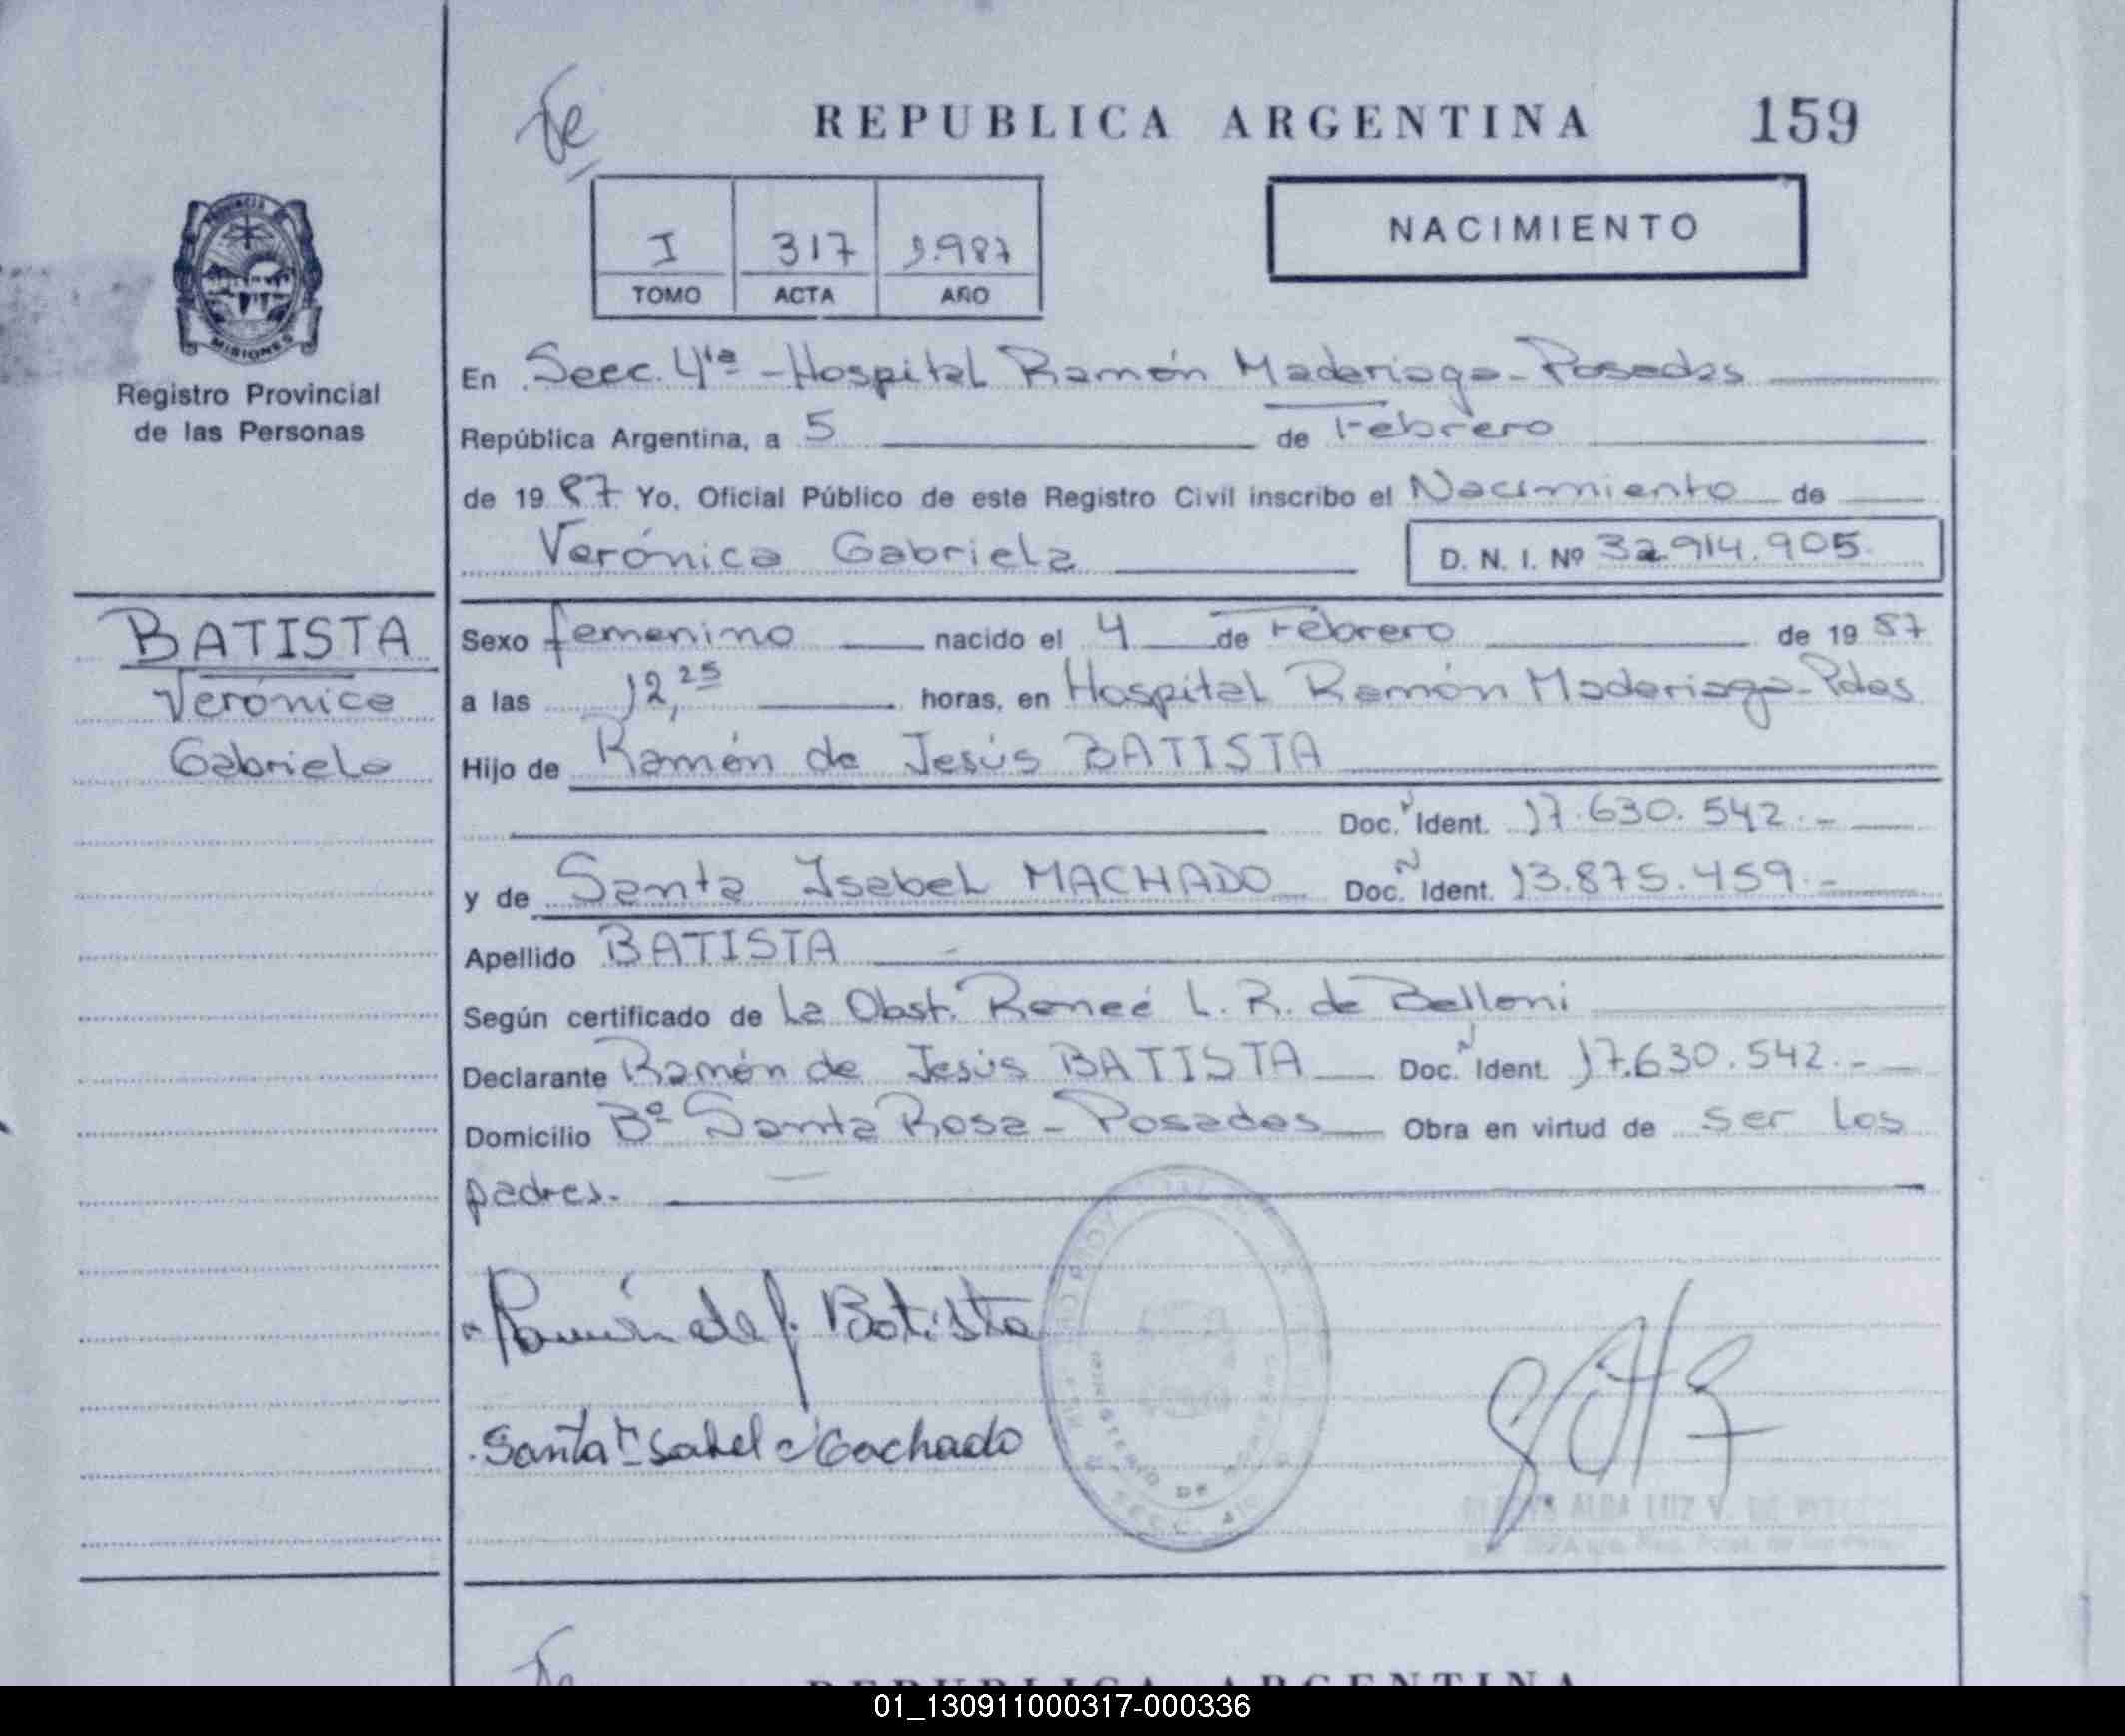 REPUBLICA ARGENTINA 159
I 317 1.987
TOMO ACTA AÑO
NACIMIENTO
PROVINCIA
MISIONES
Registro Provincial
de las Personas
En Secc. 4ta - Hospital Ramón Madariaga - Posadas
República Argentina, a 5 de Febrero
de 19 87 Yo, Oficial Público de este Registro Civil inscribo el Nacimiento de
Verónica Gabriela D. N. I. Nº 32.914.905
BATISTA
Verónica
Gabriela
Sexo femenino nacido el 4 de Febrero de 19 87
a las 12,25 horas, en Hospital Ramón Madariaga - Pdas
Hijo de Ramón de Jesús BATISTA
Doc. N Ident. 17.630.542.-
y de Santa Isabel MACHADO Doc. N Ident. 13.875.459.-
Apellido BATISTA
Según certificado de La Obst. Reneé L. R. de Belloni
Declarante Ramón de Jesús BATISTA Doc. N Ident. 17.630.542.-
Domicilio Bº Santa Rosa - Posadas Obra en virtud de ser los
padres.-
Ramón de J. Batista
Santa Isabel Machado
ALBA LUZ V. DE
REPUBLICA ARGENTINA
01_130911000317-000336